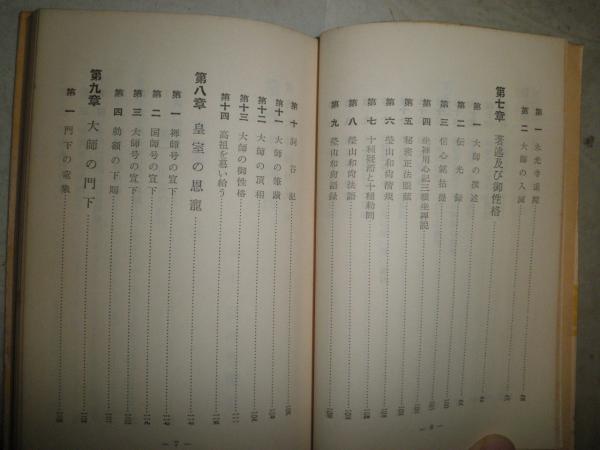 第一 永光寺退院
第二 大師の入滅
第七章 著述及び御性格
第一 大師の撰述
第二 伝光録
第三 信心銘拈提
第四 坐禅用心記三根坐禅説
第五 秘密正法眼蔵
第六 瑩山和尚清規
第七 十種疑滞と十種勅問
第八 瑩山和尚法語
第九 瑩山和尚語録
— 6 —
第十 洞谷記
第十一 大師の雑蹟
第十二 大師の頂相
第十三 大師の御性格
第十四 高祖を慕い給う
第八章 皇室の恩寵
第一 禅師号の宣下
第二 国師号の宣下
第三 大師号の宣下
第四 勅額の下賜
第九章 大師の門下
第一 門下の竜象
— 7 —